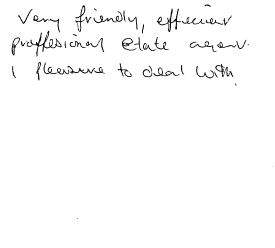 Very friendly, efficient
proffesional estate agent.
A pleasure to deal with.